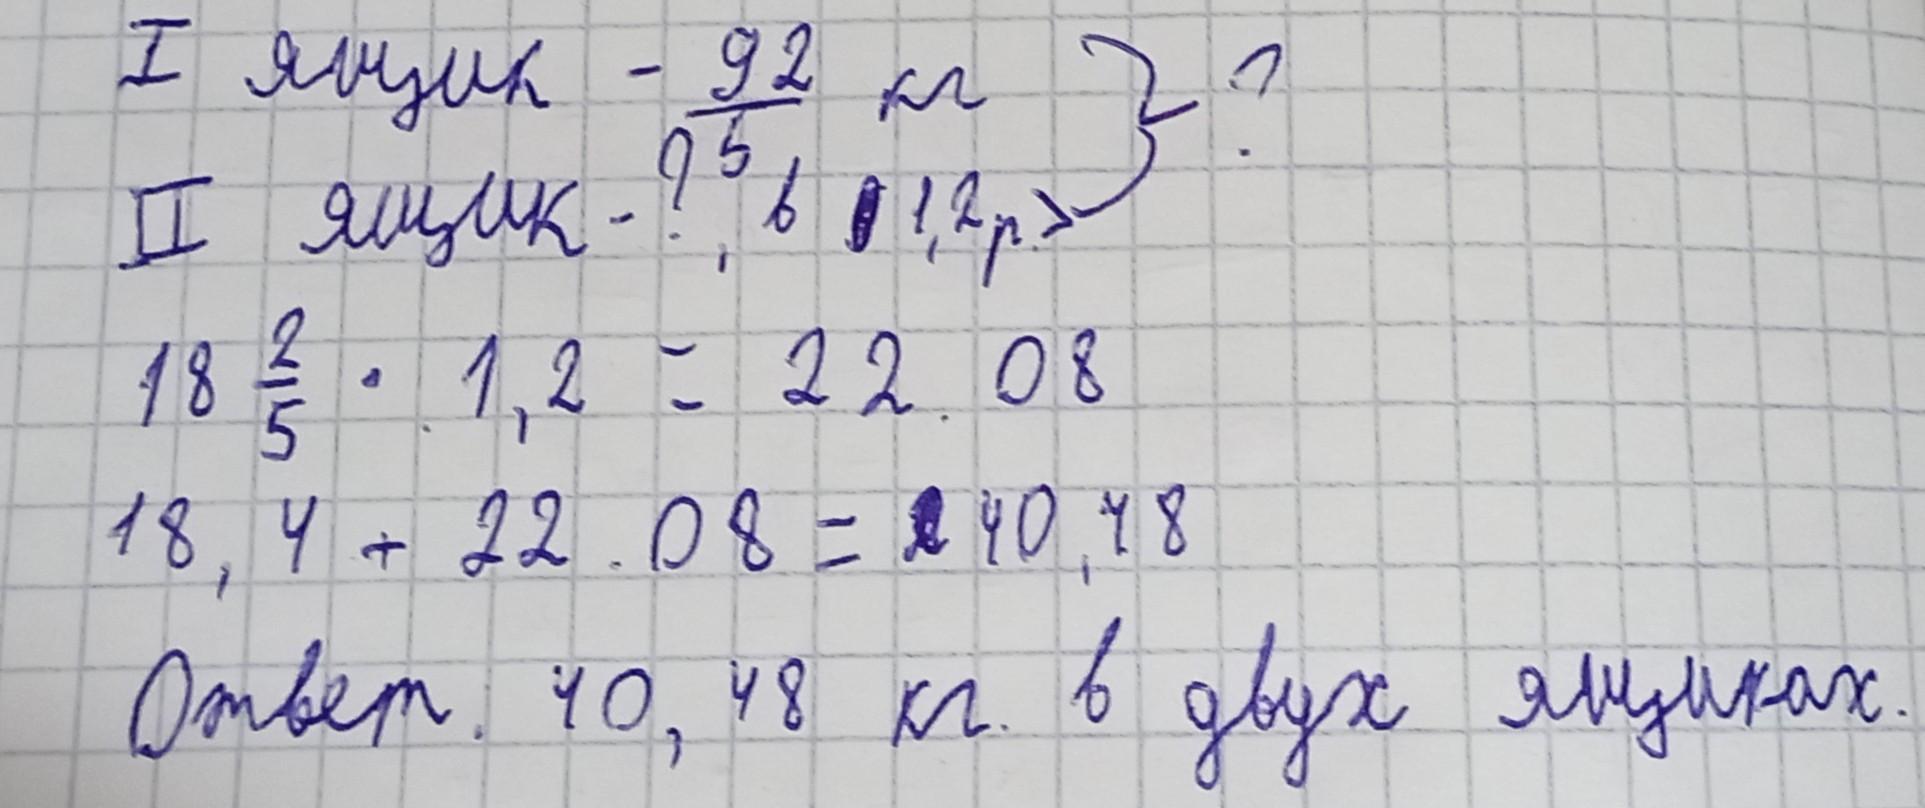 I ящик - 92/5 кг } ?
II ящик - ?, в 1,2 р. >
18 2/5 · 1,2 = 22.08
18,4 + 22.08 = 40,48
Ответ. 40,48 кг. в двух ящиках.